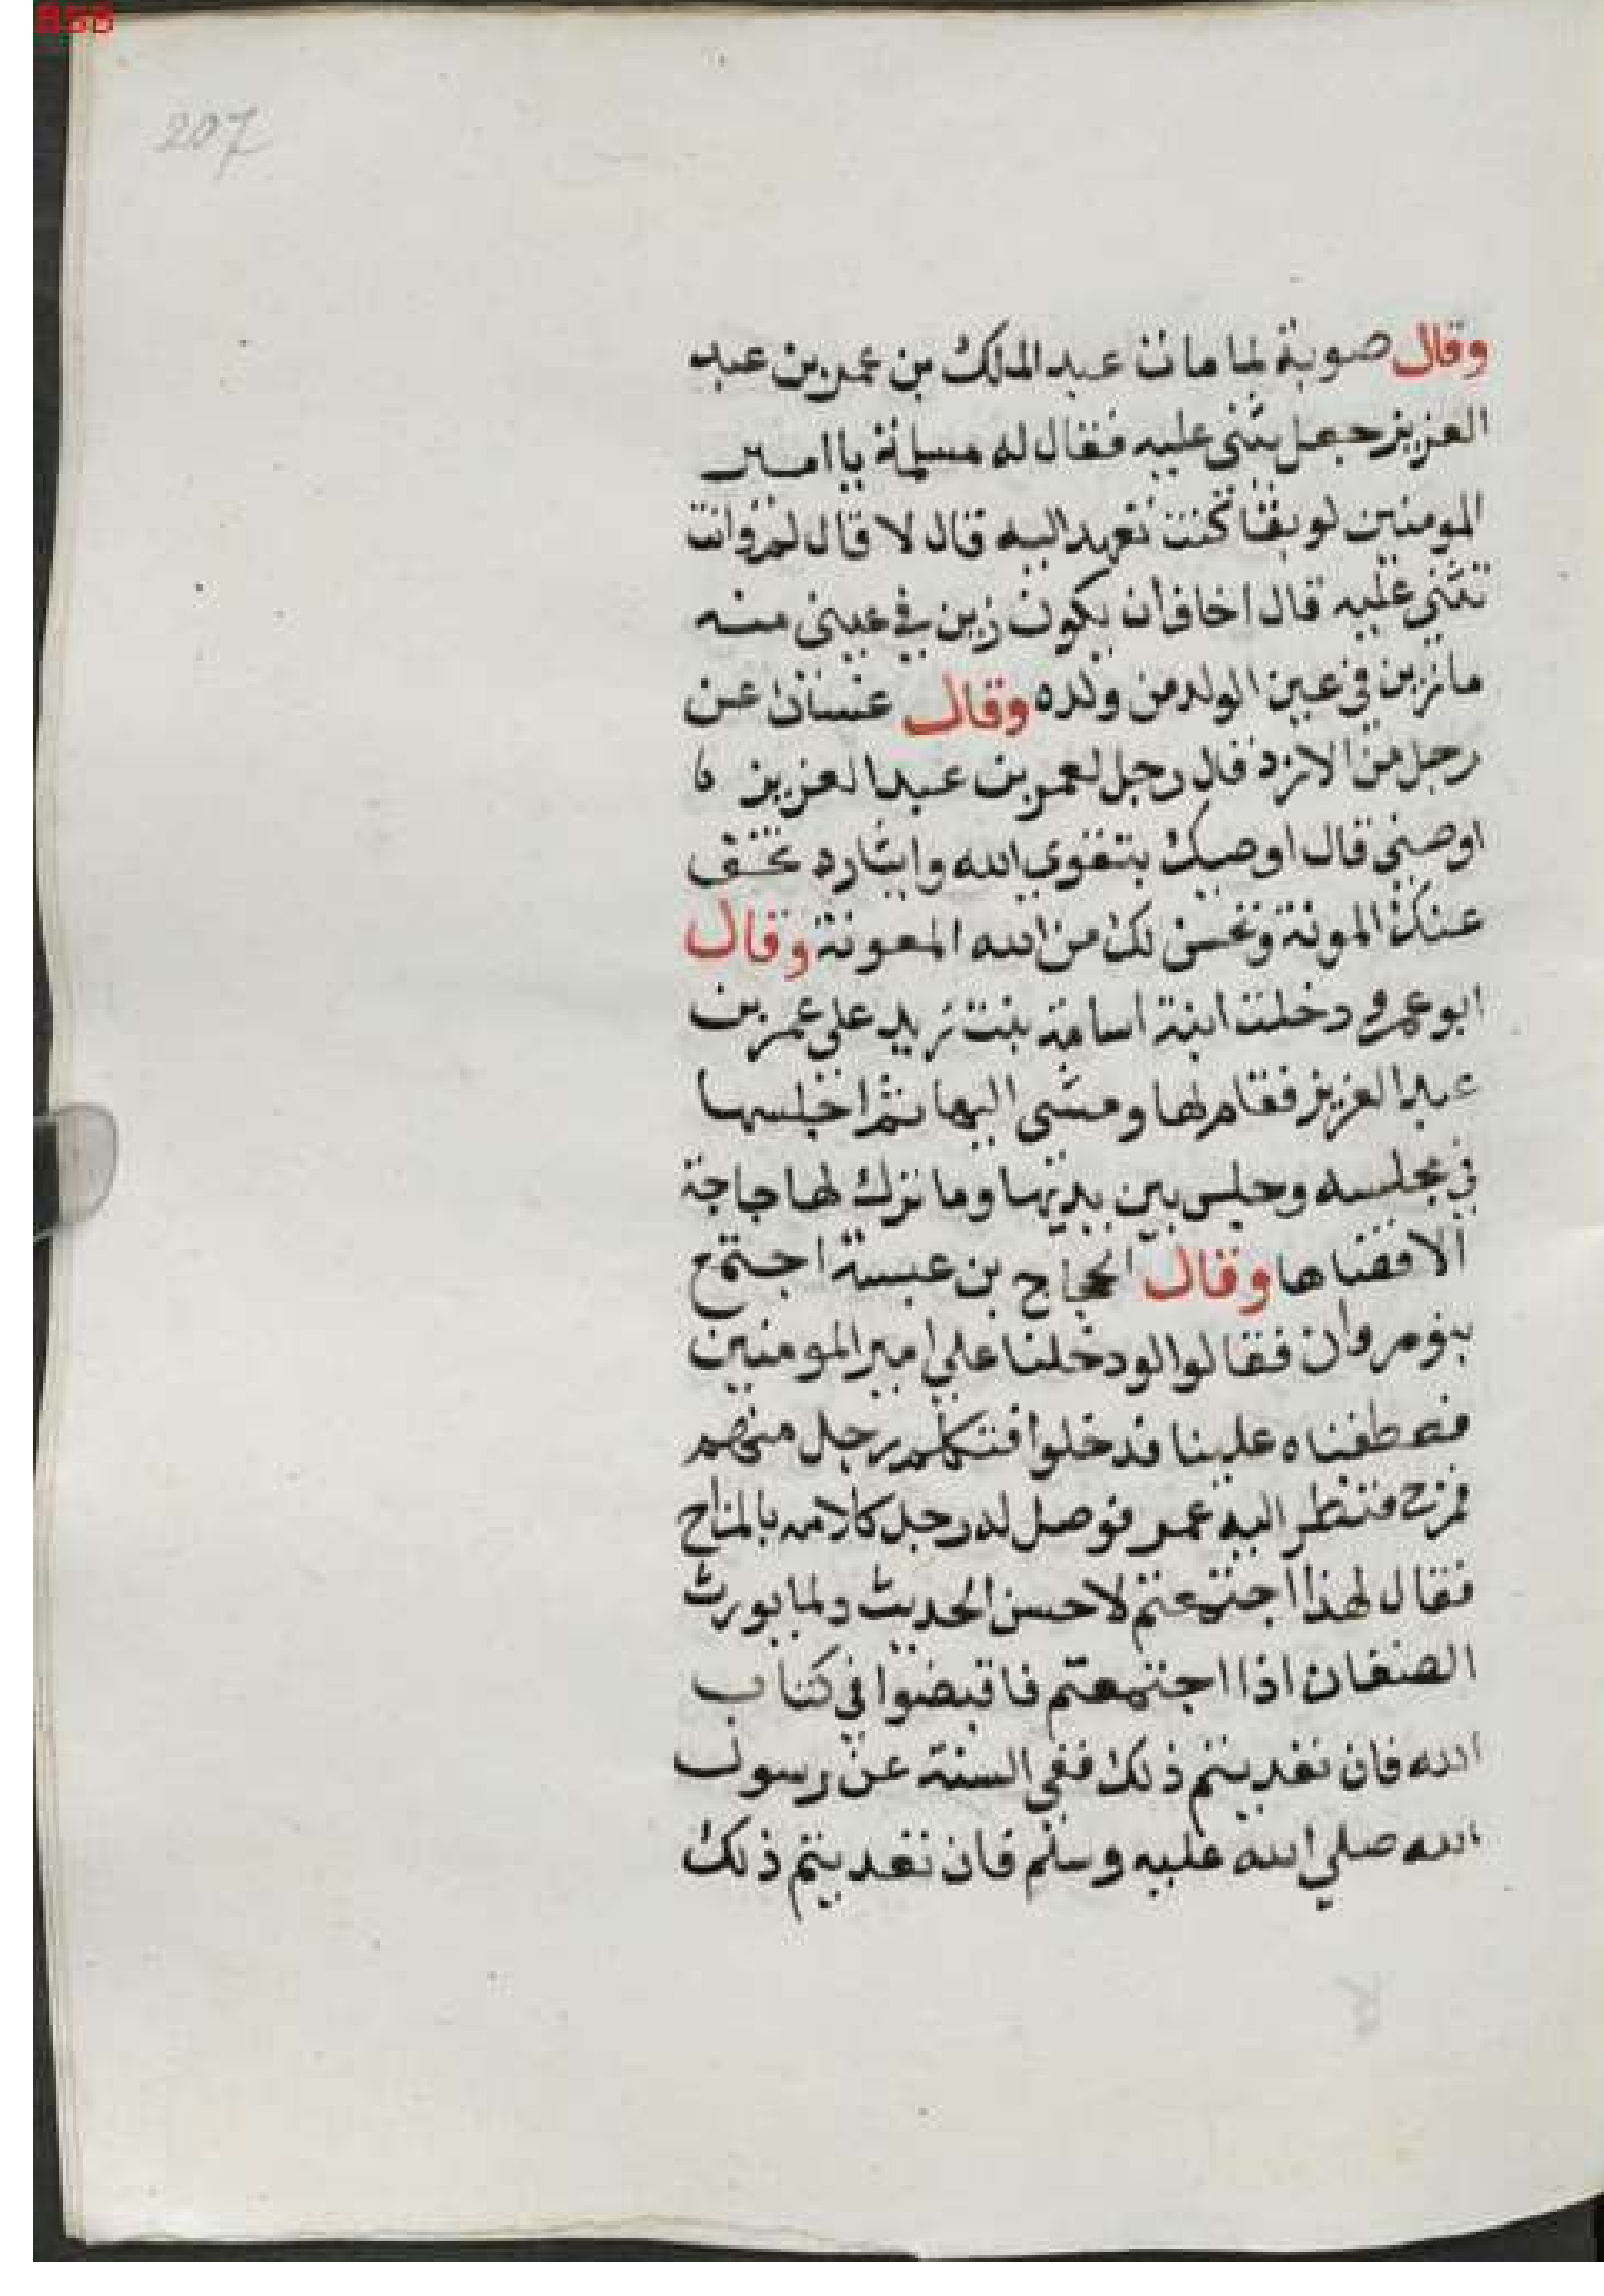 858
207
وقال صوبة لما مات عبد الملك بن عمر بن عبد
العزيز جعل يثني عليه فقال له مسلمة يا امير
المومنين لو بقا كنت تعهد اليه قال لا قال لم وانت
تثني عليه قال اخاف أن يكون زين في عيني منه
ما زين في عين الولد من ولده وقال عنسان عن
رجل من الازد قال رجل لعمر بن عبد العزيز
اوصني قال اوصيك بتقوي الله وايثاره تخف
عنك المونة وتحسن لك من الله المعونة وقال
ابو عمرو دخلت ابنة اسامة بنت زيد علي عمر بن
عبد العزيز فقام لها ومشي اليها ثم اجلسها
في مجلسه وجلس بين يديها وما ترك لها حاجة
الا قضاها وقال الحجاج بن عبسة اجتمع
بنو مروان فقالوا لو دخلنا علي امير المومنين
فعطفناه علينا فدخلوا فتكلم رجل منهم
فمزح فنظر اليه عمر فوصل له رجل كلامه بالمزاح
فقال لهذا اجتمعتم لاحسن الحديث ولما يورث
الضغان اذا اجتمعتم فاقبضوا في كتاب
الله فان تعديتم ذلك ففي السنة عن رسول
الله صلي الله عليه وسلم فان تعديتم ذلك